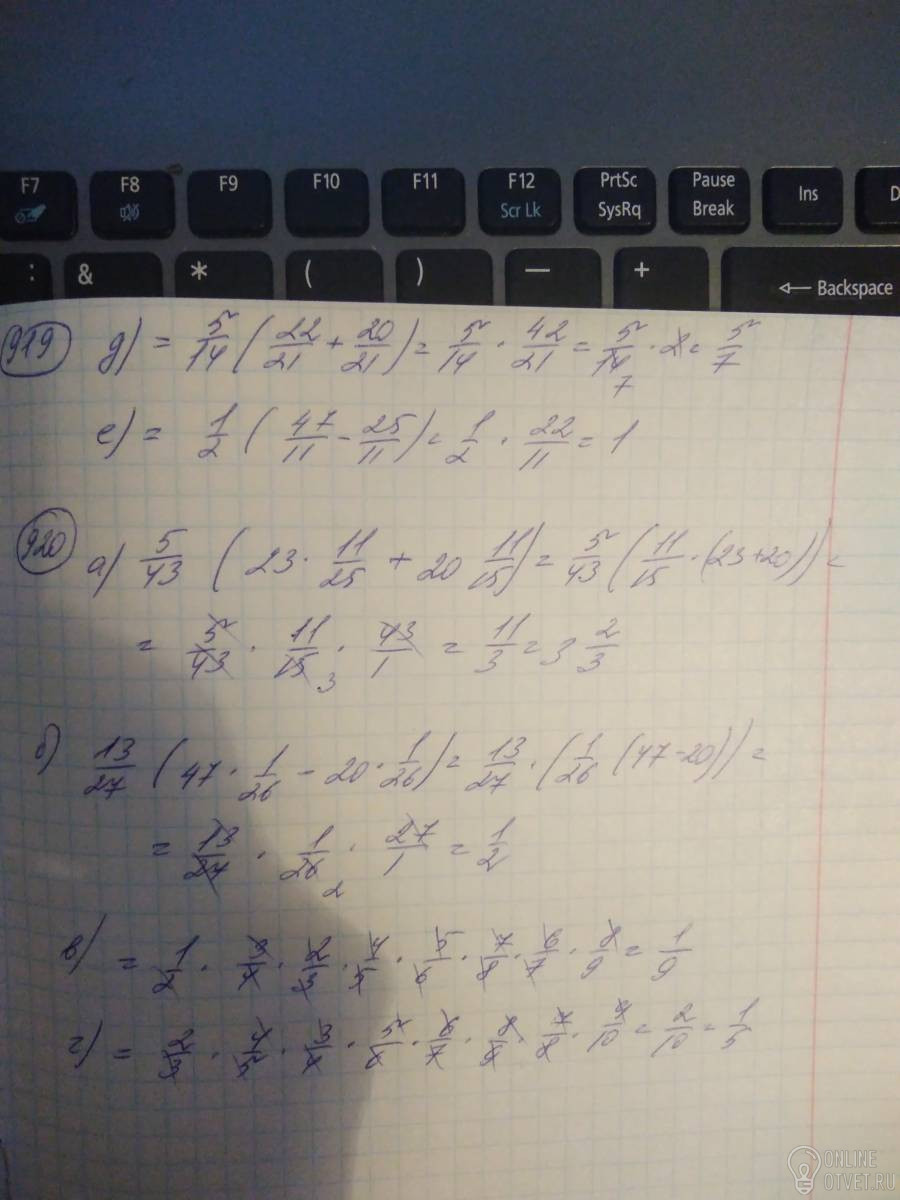 F7 F8 F9 F10 F11 F12 PrtSc Pause Ins D
Scr Lk SysRq Break
: & * ( ) — + ⟵ Backspace
919 д) = 5/14 (22/21 + 20/21) = 5/14 · 42/21 = 5/14 7 · 2 = 5/7
е) = 1/2 (47/11 - 25/11) = 1/2 · 22/11 = 1
920 а) 5/43 (23 · 11/25 + 20 11/15) = 5/43 (11/15 · (23+20)) =
= 5/43 · 11/15 3 · 43/1 = 11/3 = 3 2/3
б) 13/27 (47 · 1/26 - 20 · 1/26) = 13/27 · (1/26 (47-20)) =
= 13/27 · 1/26 2 · 27/1 = 1/2
в) = 1/2 · 3/4 · 2/3 · 4/5 · 5/6 · 7/8 · 6/7 · 8/9 = 1/9
г) = 2/3 · 4/5 · 3/4 · 5/6 · 6/7 · 8/9 · 7/8 · 9/10 = 2/10 = 1/5
ONLINE
OTVET.RU